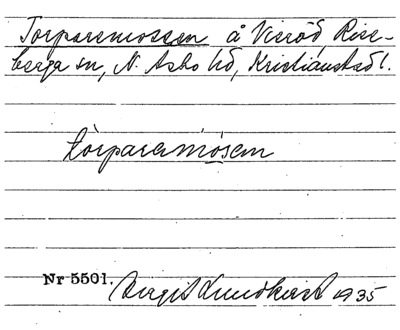 Torparemossen å Visröd, Rise-
berga sn, N. Åsbo hd, Kristianstad l.
tòrparemósen
Nr 5501. Birgit Lundkvist 1935